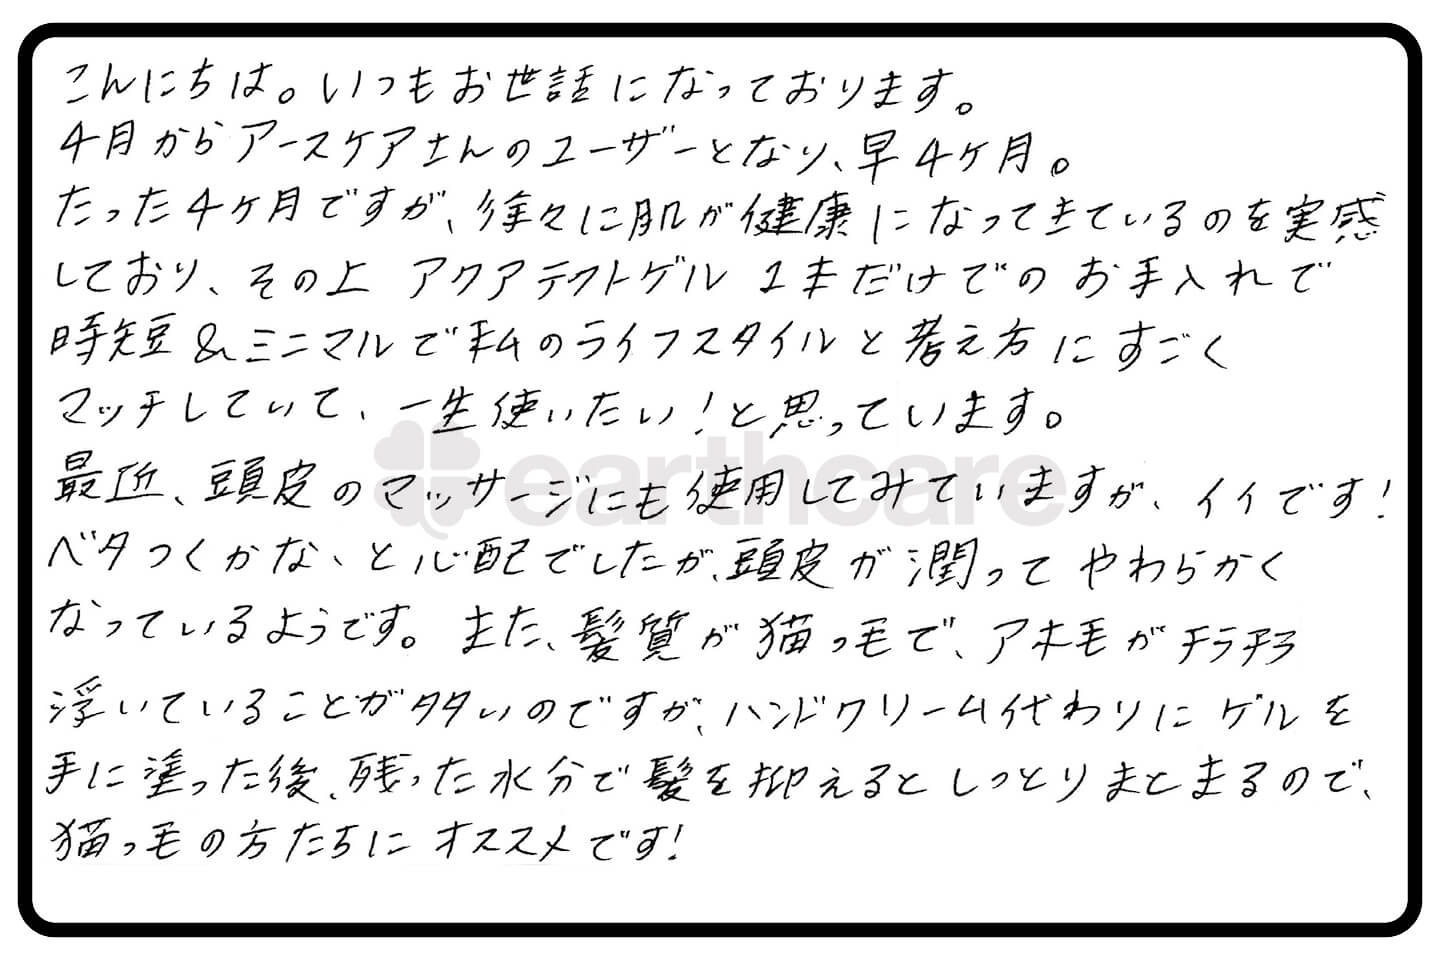 こんにちは。いつもお世話になっております。
4月からアースケアさんのユーザーとなり、早4ヶ月。
たった4ヶ月ですが、徐々に肌が健康になってきているのを実感
しており、その上 アクアテクトゲル 1本だけでの お手入れで
時短&ミニマルで私のライフスタイルと考え方にすごく
マッチしていて、一生使いたい!と思っています。
earthcare
最近、頭皮のマッサージにも使用してみていますが、イイです!
ベタつくかな、と心配でしたが、頭皮が潤って やわらかく
なっているようです。また、髪質が猫っ毛で、アホ毛がチラチラ
浮いていることが多いのですが、ハンドクリーム代わりにゲルを
手に塗った後、残った水分で髪を抑えるとしっとりまとまるので、
猫っ毛の方たちに オススメです!